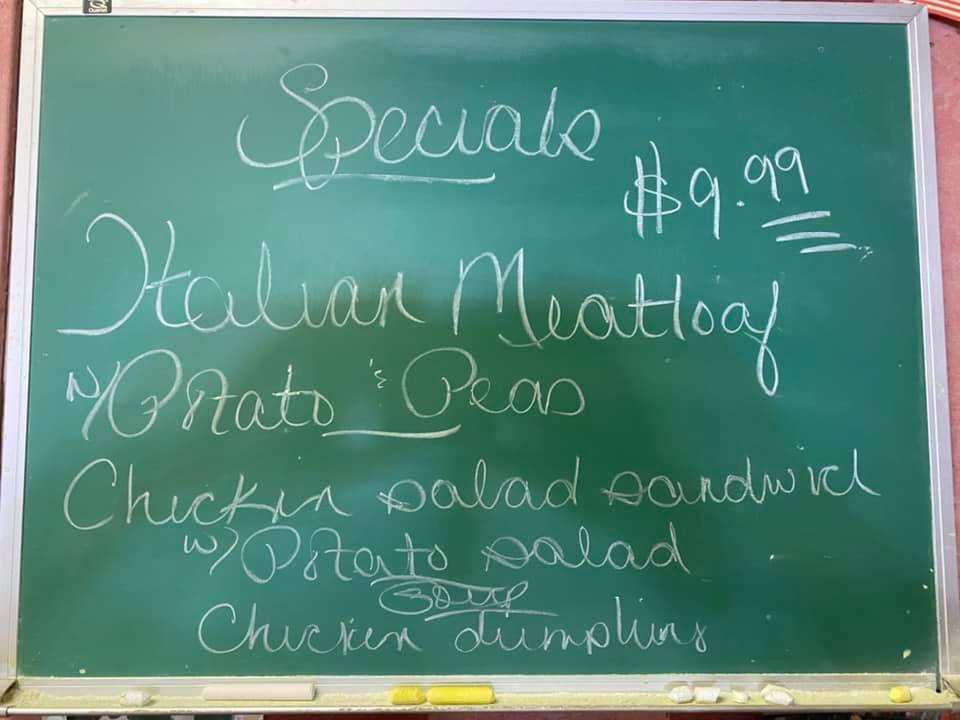 Specials
$9.99
Italian Meatloaf
w/ Potato & Peas
Chicken salad sandwich
w/ Potato salad
Soup
Chicken dumpling